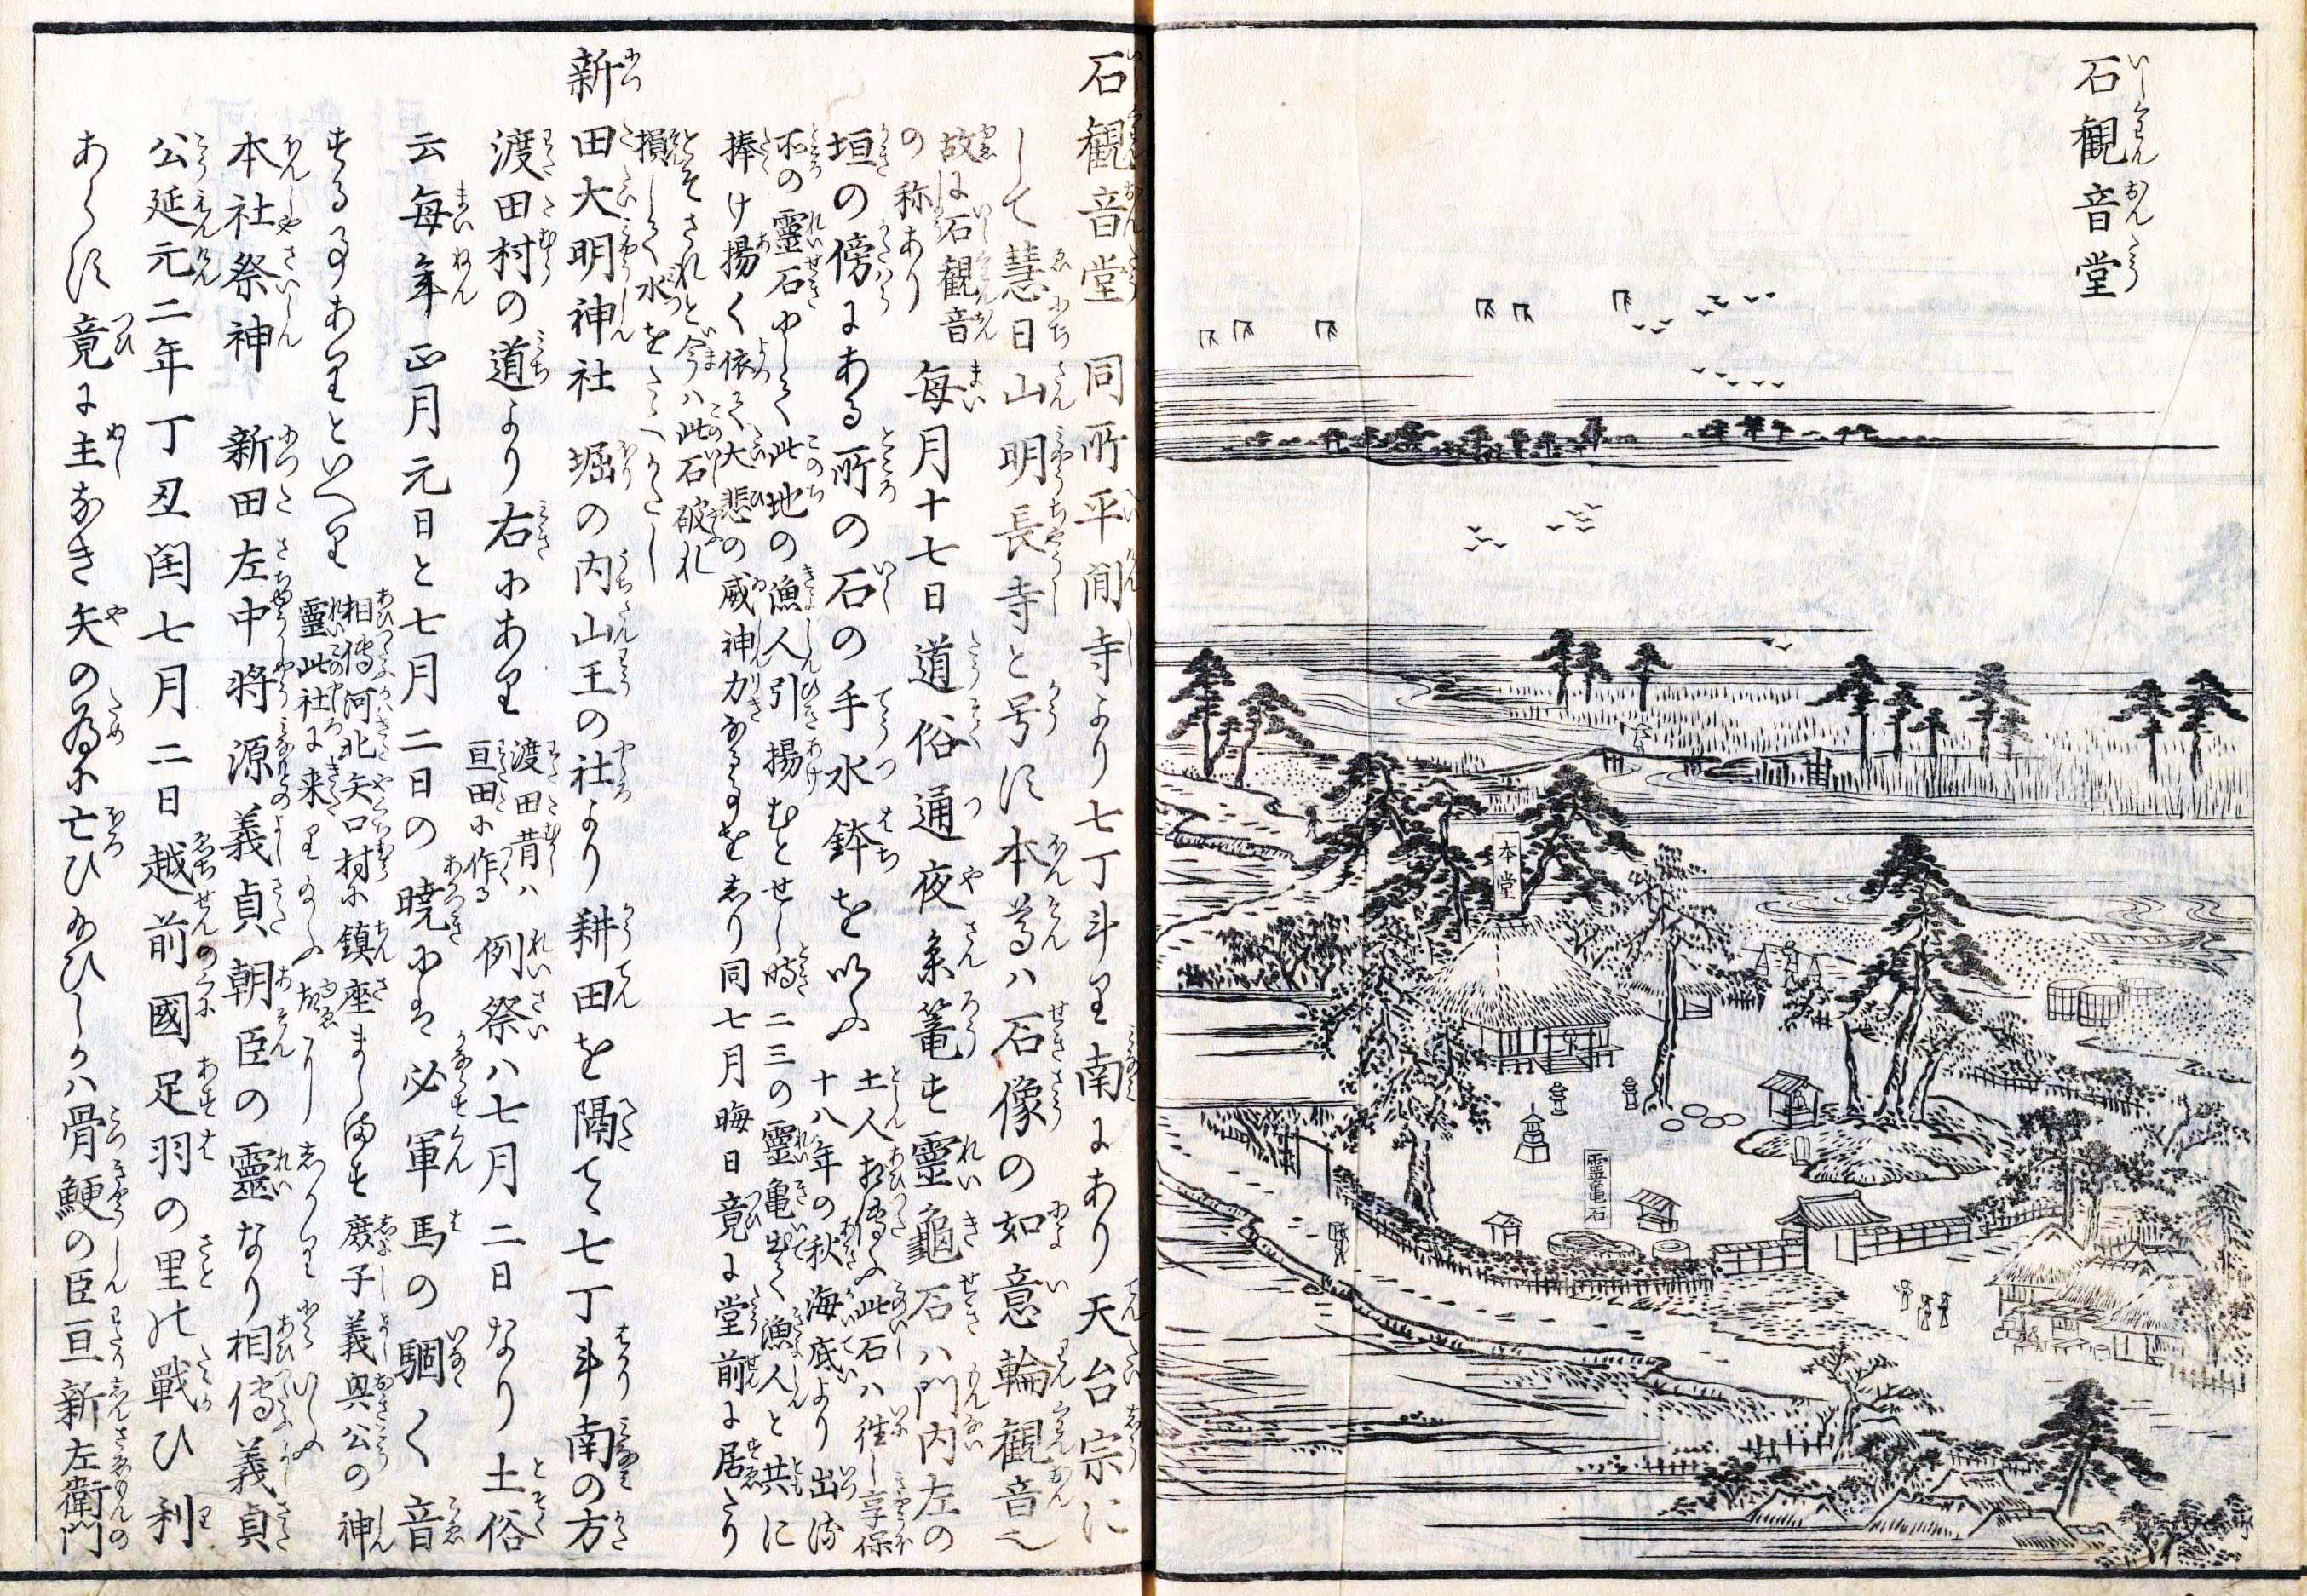 石観音堂
本堂
霊亀石
石観音堂 同所平間寺より七丁斗り南にあり天台宗に
して慧日山明長寺と号す本尊ハ石像の如意輪観音也
故に石観音
の称あり 毎月十七日道俗通夜参篭す霊龜石ハ門内左の
垣の傍にある所の石の手水鉢を以ふ 土人相傳ふ此石ハ往し享保
十八年の秋海底より出現
所の霊石にして此地の漁人引揚むとせし時二三の霊亀出て漁人と共に
捧け揚く依て大悲の威神力なる事をしり同七月晦日竟に堂前に居たり
とそされと今ハ此石破れ
損して水をたくへかたし
新田大明神社 堀の内山王の社より耕田を隔て七丁斗南の方
渡田村の道より右にあり 渡田昔ハ
亘田に作る 例祭ハ七月二日なり土俗
云毎年正月元日と七月二日の暁にハ必軍馬の騆く音
する事ありといへり 相傳河北矢口村に鎮座まします廢子義興公の神
霊此社に来り
本社祭神 新田左中将源義貞朝臣の靈なり相傳義貞
公延元二年丁丑閏七月二日越前國足羽の里の戰ひ利
あらす竟に主なき矢の為に亡ひ給ひしかハ骨鯁の臣亘新左衛門